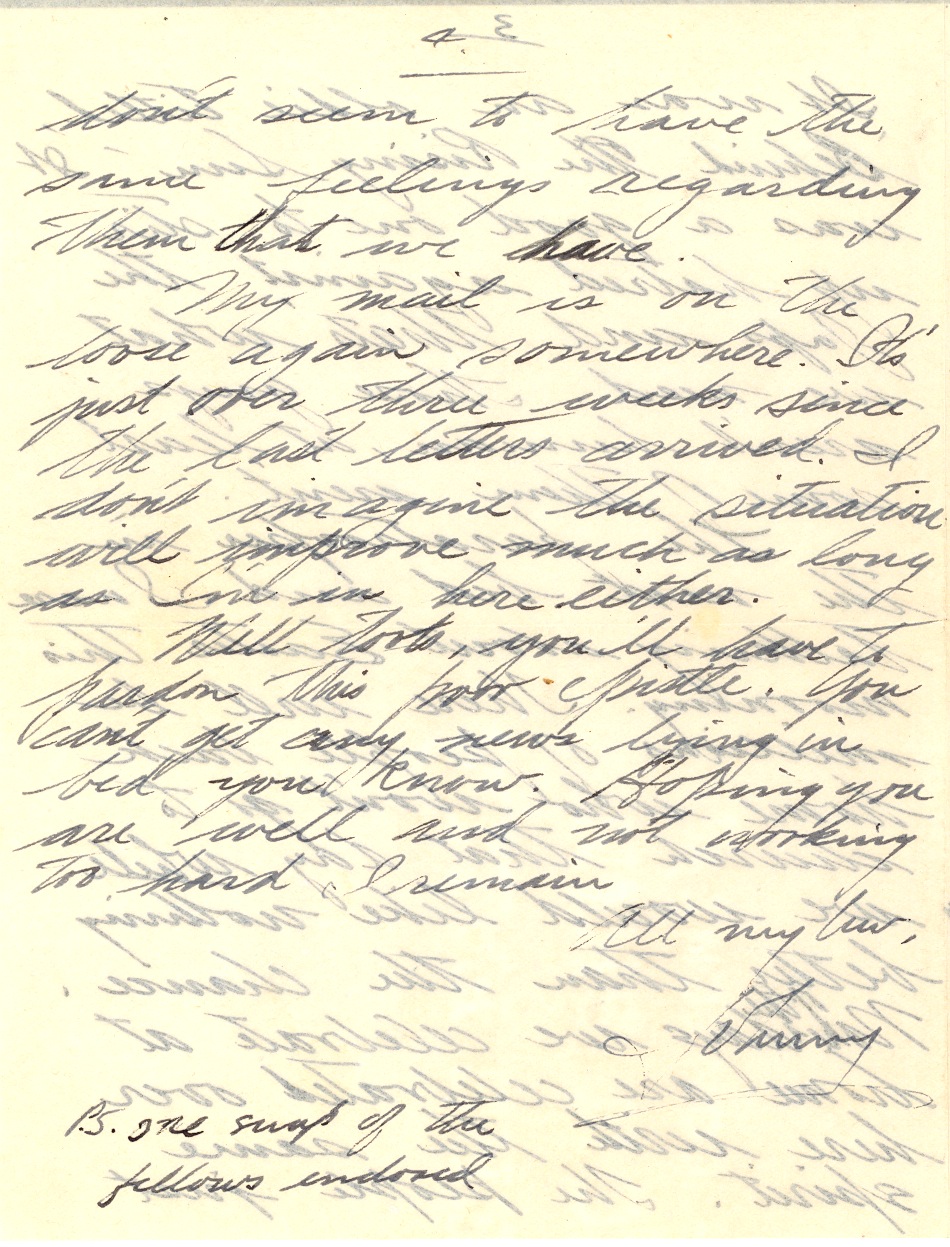 4
don't seem to have the
same feelings regarding
them that we have.
My mail is on the
loose again somewhere. It's
just over three weeks since
the last letters arrived. I
don't imagine the situation
will improve much as long
as I'm in here either.
Well toots, you'll have to
pardon this poor epistle. You
can't get any news living in
bed you know. Hoping you
are well and not working
too hard I remain
All my luv,
Vinny
P.S. one snap of the
fellows enclosed